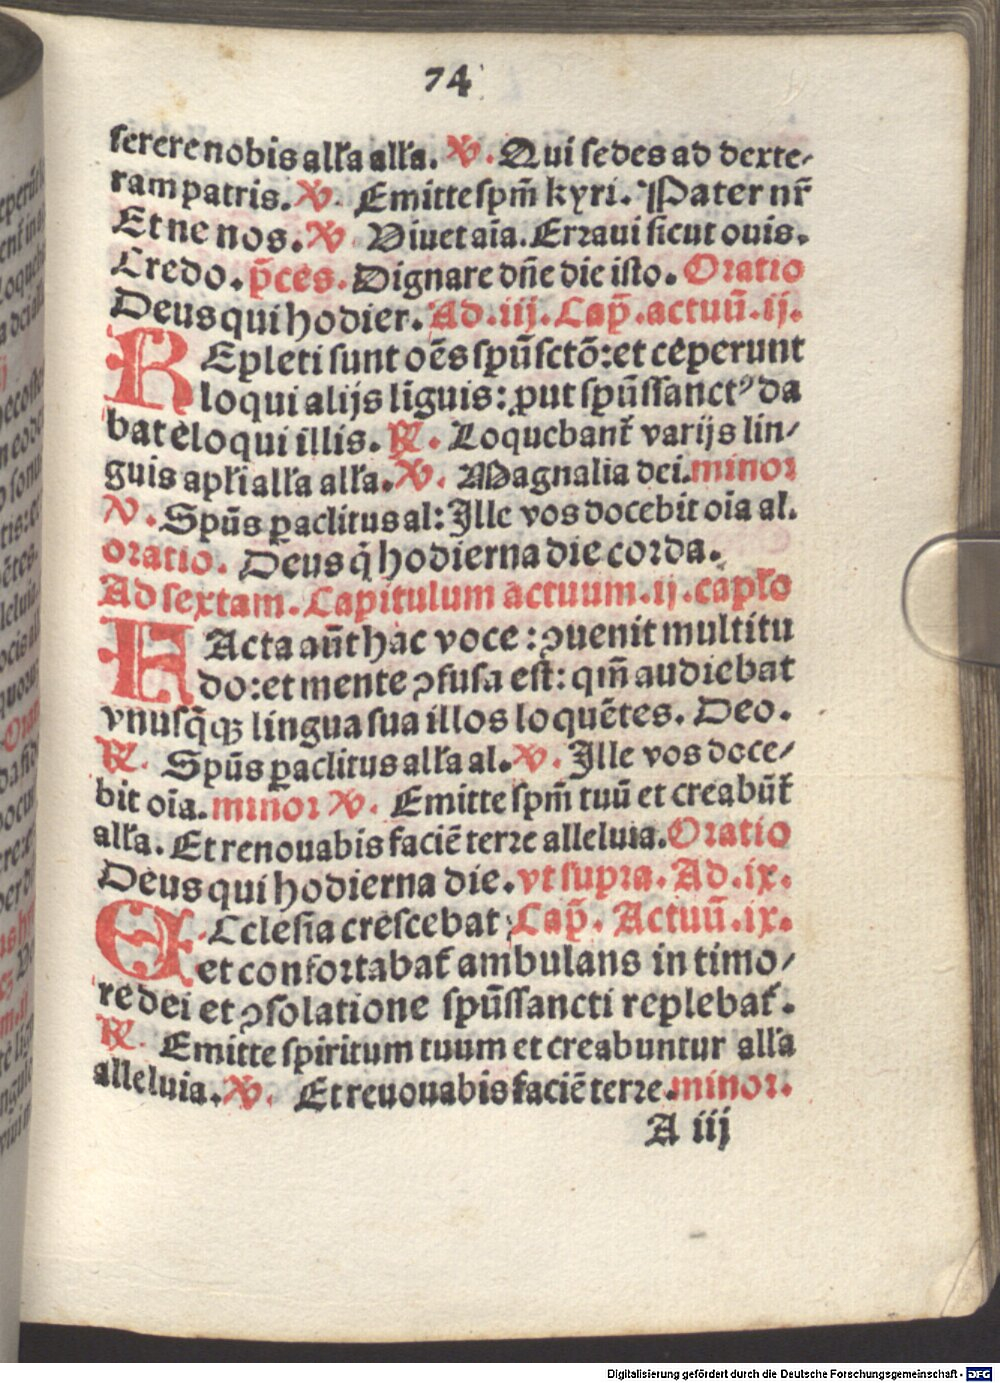 74
serere nobis alľa alľa. ℣. Qui sedes ad dexte-
ram patris. ℣. Emitte spm̄ kyri. Pater nr̄
Et ne nos. ℣. Viuet aīa. Erraui sicut ouis.
Credo. p̄ces. Dignare dn̄e die isto. Oratio
Deus qui hodier. Ad .iij. Cap̄. actuū. ij.
REpleti sunt oēs spū sctō: et ceperunt
loqui alijs līguis: ꝓut spūssanctꝰ da
bat eloqui illis. ℟. Loquebant᷑ varijs lin-
guis apľi alľa alľa. ℣. Magnalia dei. minor
℣. Spūs ꝑaclitus al: Ille vos docebit oīa al.
oratio. Deus q̇ hodierna die corda.
Ad sextam. Capitulum actuum. ij. capľo
FActa aūt hac voce: ꝯuenit multitu
do: et mente ꝯfusa est: qm̄ audiebat
vnusq̇qꝫ lingua sua illos loquētes. Deo.
℟. Spūs ꝑaclitus alľa al. ℣. Ille vos doce-
bit oīa. minor ℣. Emitte spm̄ tuū et creabūt᷑
alľa. Et renouabis faciē terre alleluia. Oratio
Deus qui hodierna die. vt supra. Ad .ix.
ECclesia crescebat: Cap̄. Actuū. ix.
et confortabat᷑ ambulans in timo-
re dei et ꝯsolatione spūssancti replebat᷑.
℟. Emitte spiritum tuum et creabuntur alľa
alleluia. ℣. Et reuouabis faciē terre. minor.
A iij
Digitalisierung gefördert durch die Deutsche Forschungsgemeinschaft - DFG